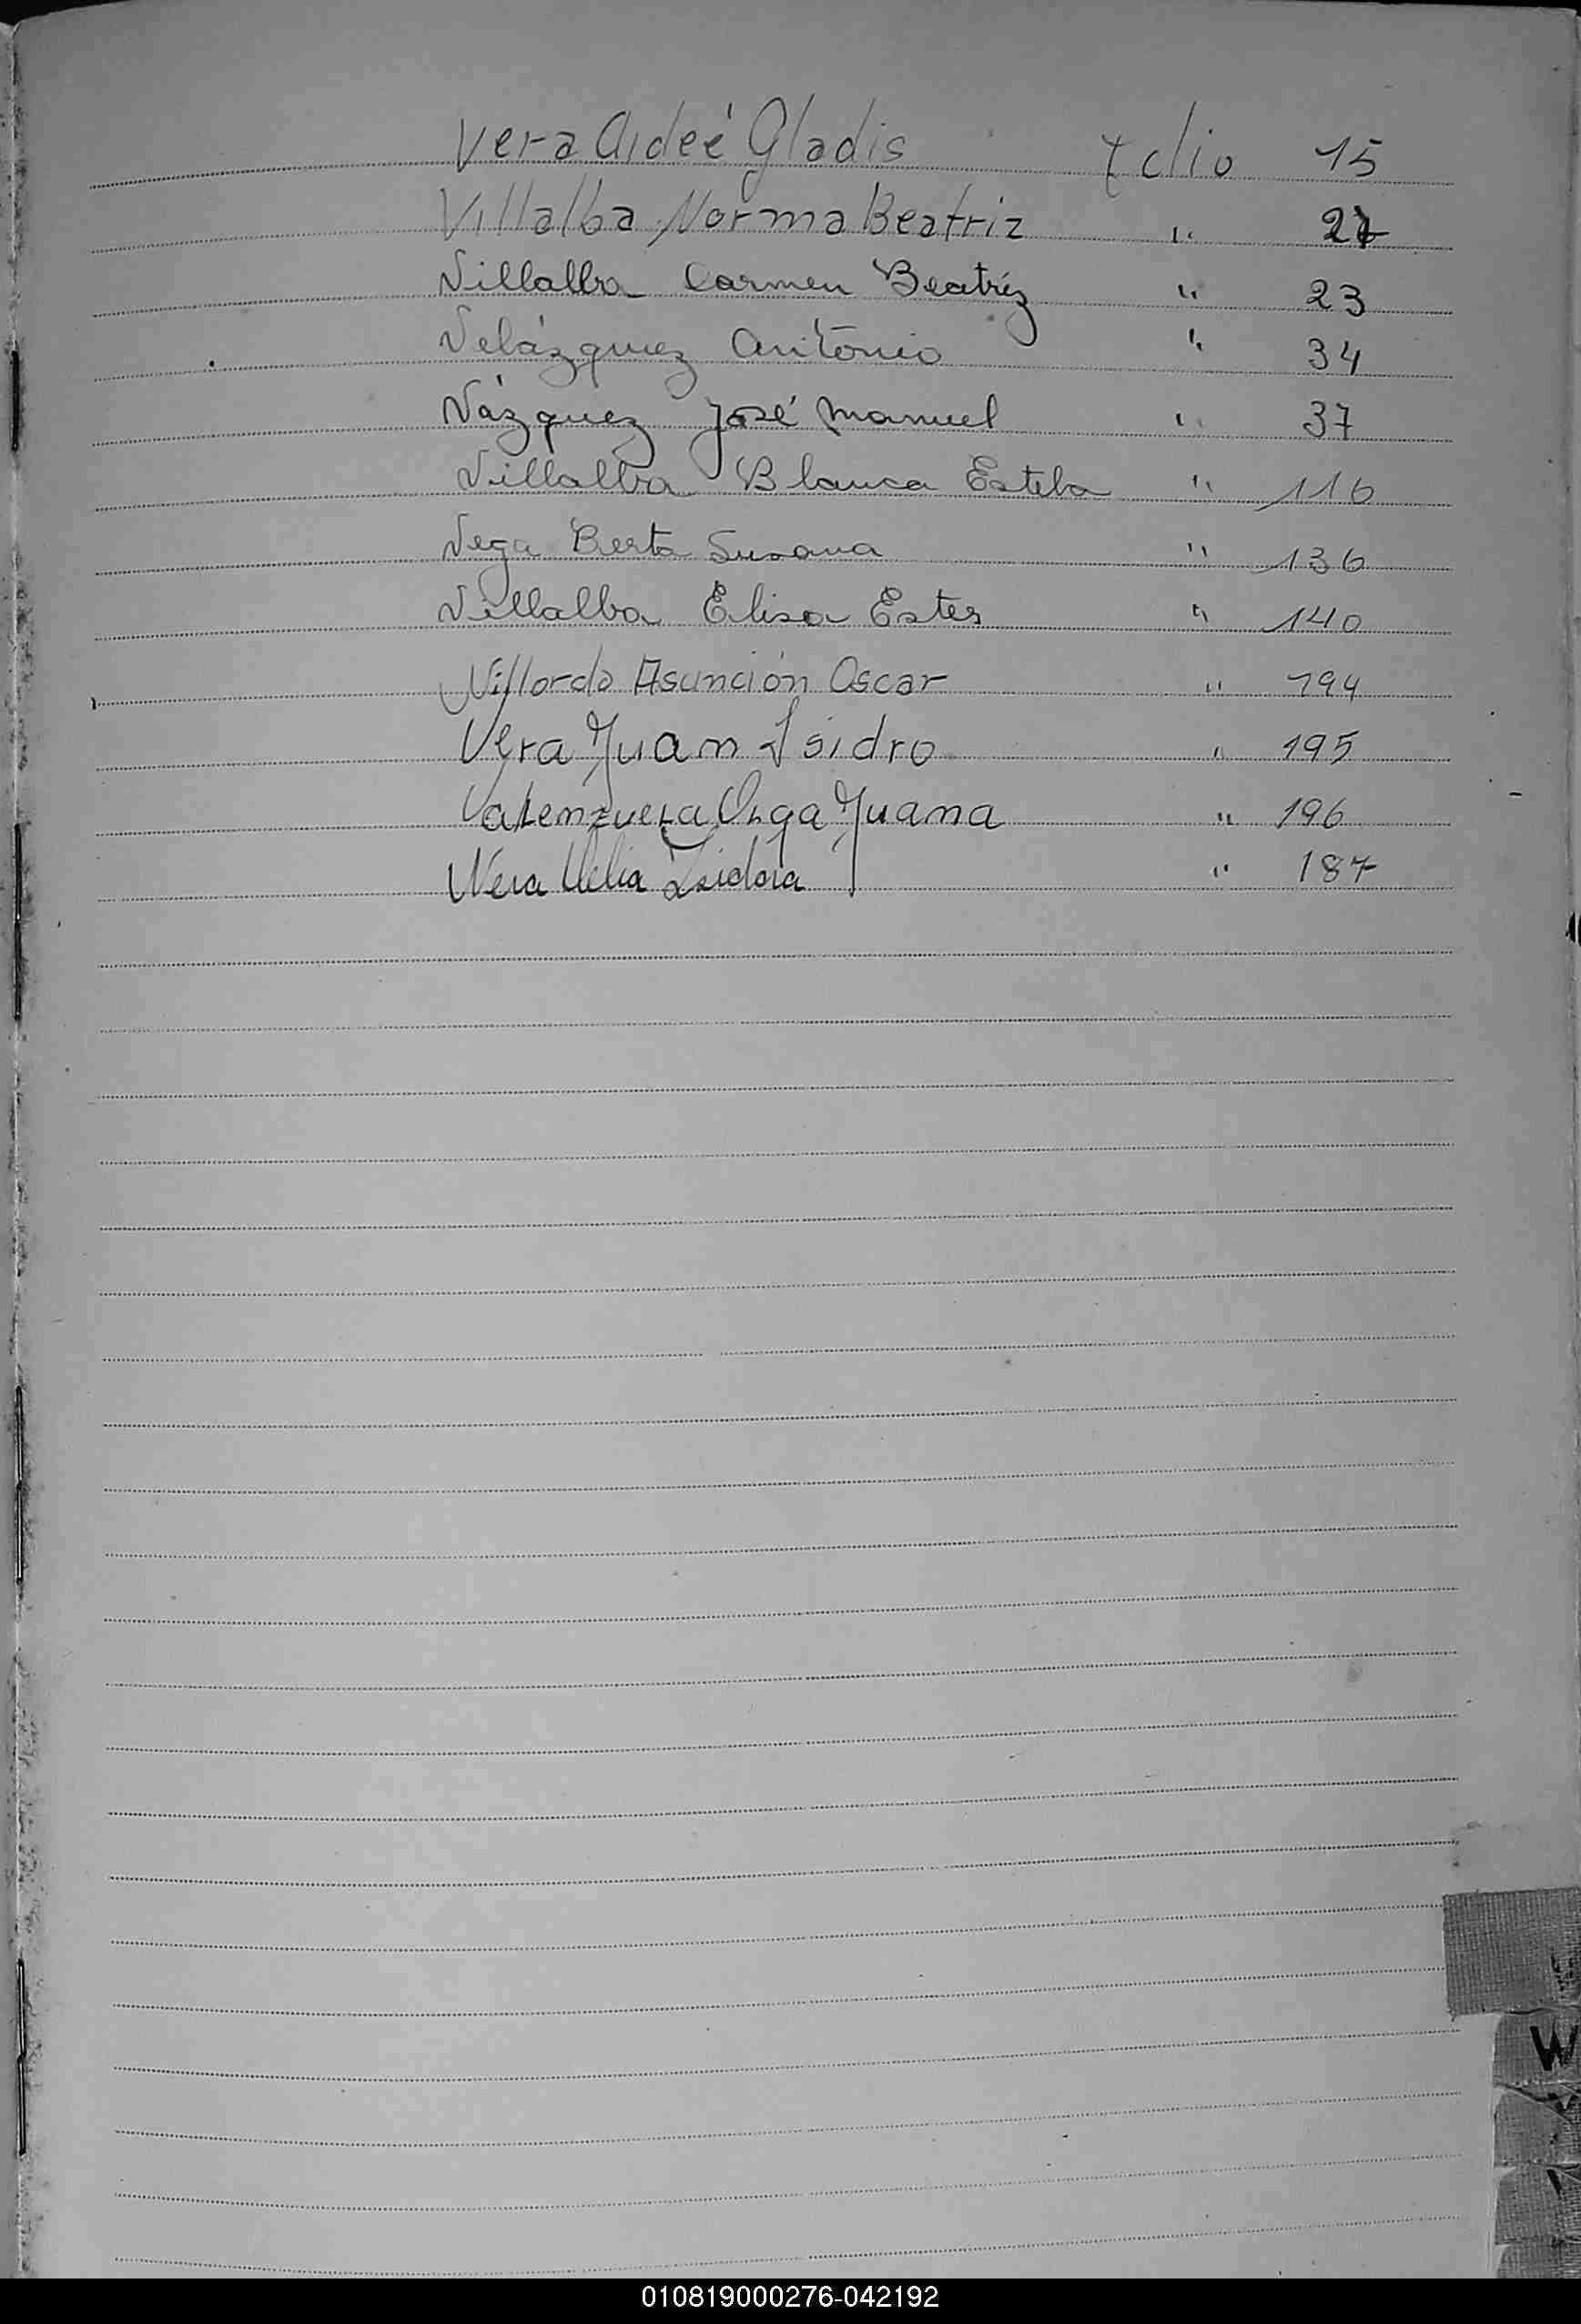 Vera Aideé Gladis folio 15
Villalba Norma Beatriz " 
Villalba Carmen Beatríz " 23
Velázquez Antonio " 34
Vázquez José Manuel " 37
Villalba Blanca Estela " 116
Vega Berta Susana " 136
Villalba Elisa Ester " 140
Villordo Asunción Oscar " 194
Vera Juan Isidro " 195
Valenzuela Olga Juana " 196
Vera Isidora " 187
W
010819000276-042192